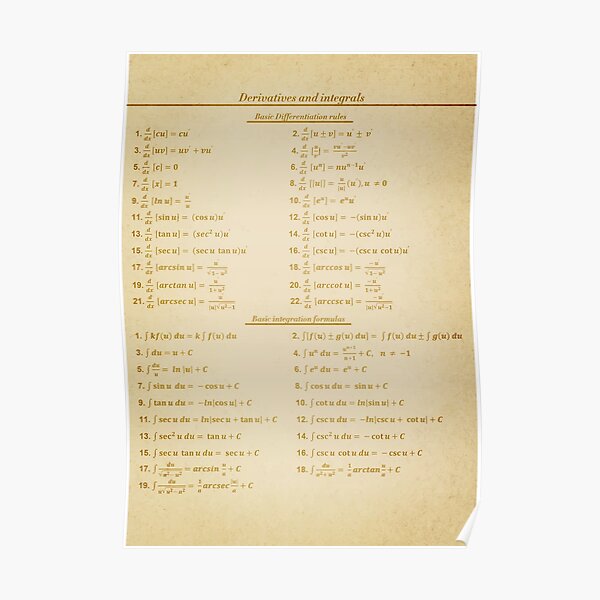 Derivatives and integrals
Basic Differentiation rules
1. d/dx [cu] = cu' 2. d/dx [u ± v] = u' ± v'
3. d/dx [uv] = uv' + vu' 4. d/dx [u/v] = (vu' − uv')/v²
5. d/dx [c] = 0 6. d/dx [uⁿ] = nuⁿ⁻¹u'
7. d/dx [x] = 1 8. d/dx [|u|] = u/|u| (u'), u ≠ 0
9. d/dx [ln u] = u'/u 10. d/dx [eᵘ] = eᵘu'
11. d/dx [sin u] = (cos u)u' 12. d/dx [cos u] = −(sin u)u'
13. d/dx [tan u] = (sec² u)u' 14. d/dx [cot u] = −(csc² u)u'
15. d/dx [sec u] = (sec u tan u)u' 16. d/dx [csc u] = −(csc u cot u)u'
17. d/dx [arcsin u] = u'/√(1−u²) 18. d/dx [arccos u] = −u'/√(1−u²)
19. d/dx [arctan u] = u'/(1+u²) 20. d/dx [arccot u] = −u'/(1+u²)
21. d/dx [arcsec u] = u'/(|u|√(u²−1)) 22. d/dx [arccsc u] = −u'/(|u|√(u²−1))
Basic integration formulas
1. ∫ kf(u) du = k ∫ f(u) du 2. ∫[f(u) ± g(u) du] = ∫ f(u) du ± ∫ g(u) du
3. ∫ du = u + C 4. ∫ uⁿ du = uⁿ⁺¹/(n+1) + C, n ≠ −1
5. ∫ du/u = ln |u| + C 6. ∫ eᵘ du = eᵘ + C
7. ∫ sin u du = − cos u + C 8. ∫ cos u du = sin u + C
9. ∫ tan u du = −ln|cos u| + C 10. ∫ cot u du = ln|sin u| + C
11. ∫ sec u du = ln|sec u + tan u| + C 12. ∫ csc u du = −ln|csc u + cot u| + C
13. ∫ sec² u du = tan u + C 14. ∫ csc² u du = − cot u + C
15. ∫ sec u tan u du = sec u + C 16. ∫ csc u cot u du = − csc u + C
17. ∫ du/√(a²−u²) = arcsin u/a + C 18. ∫ du/(a²+u²) = 1/a arctan u/a + C
19. ∫ du/(u√(u²−a²)) = 1/a arcsec |u|/a + C